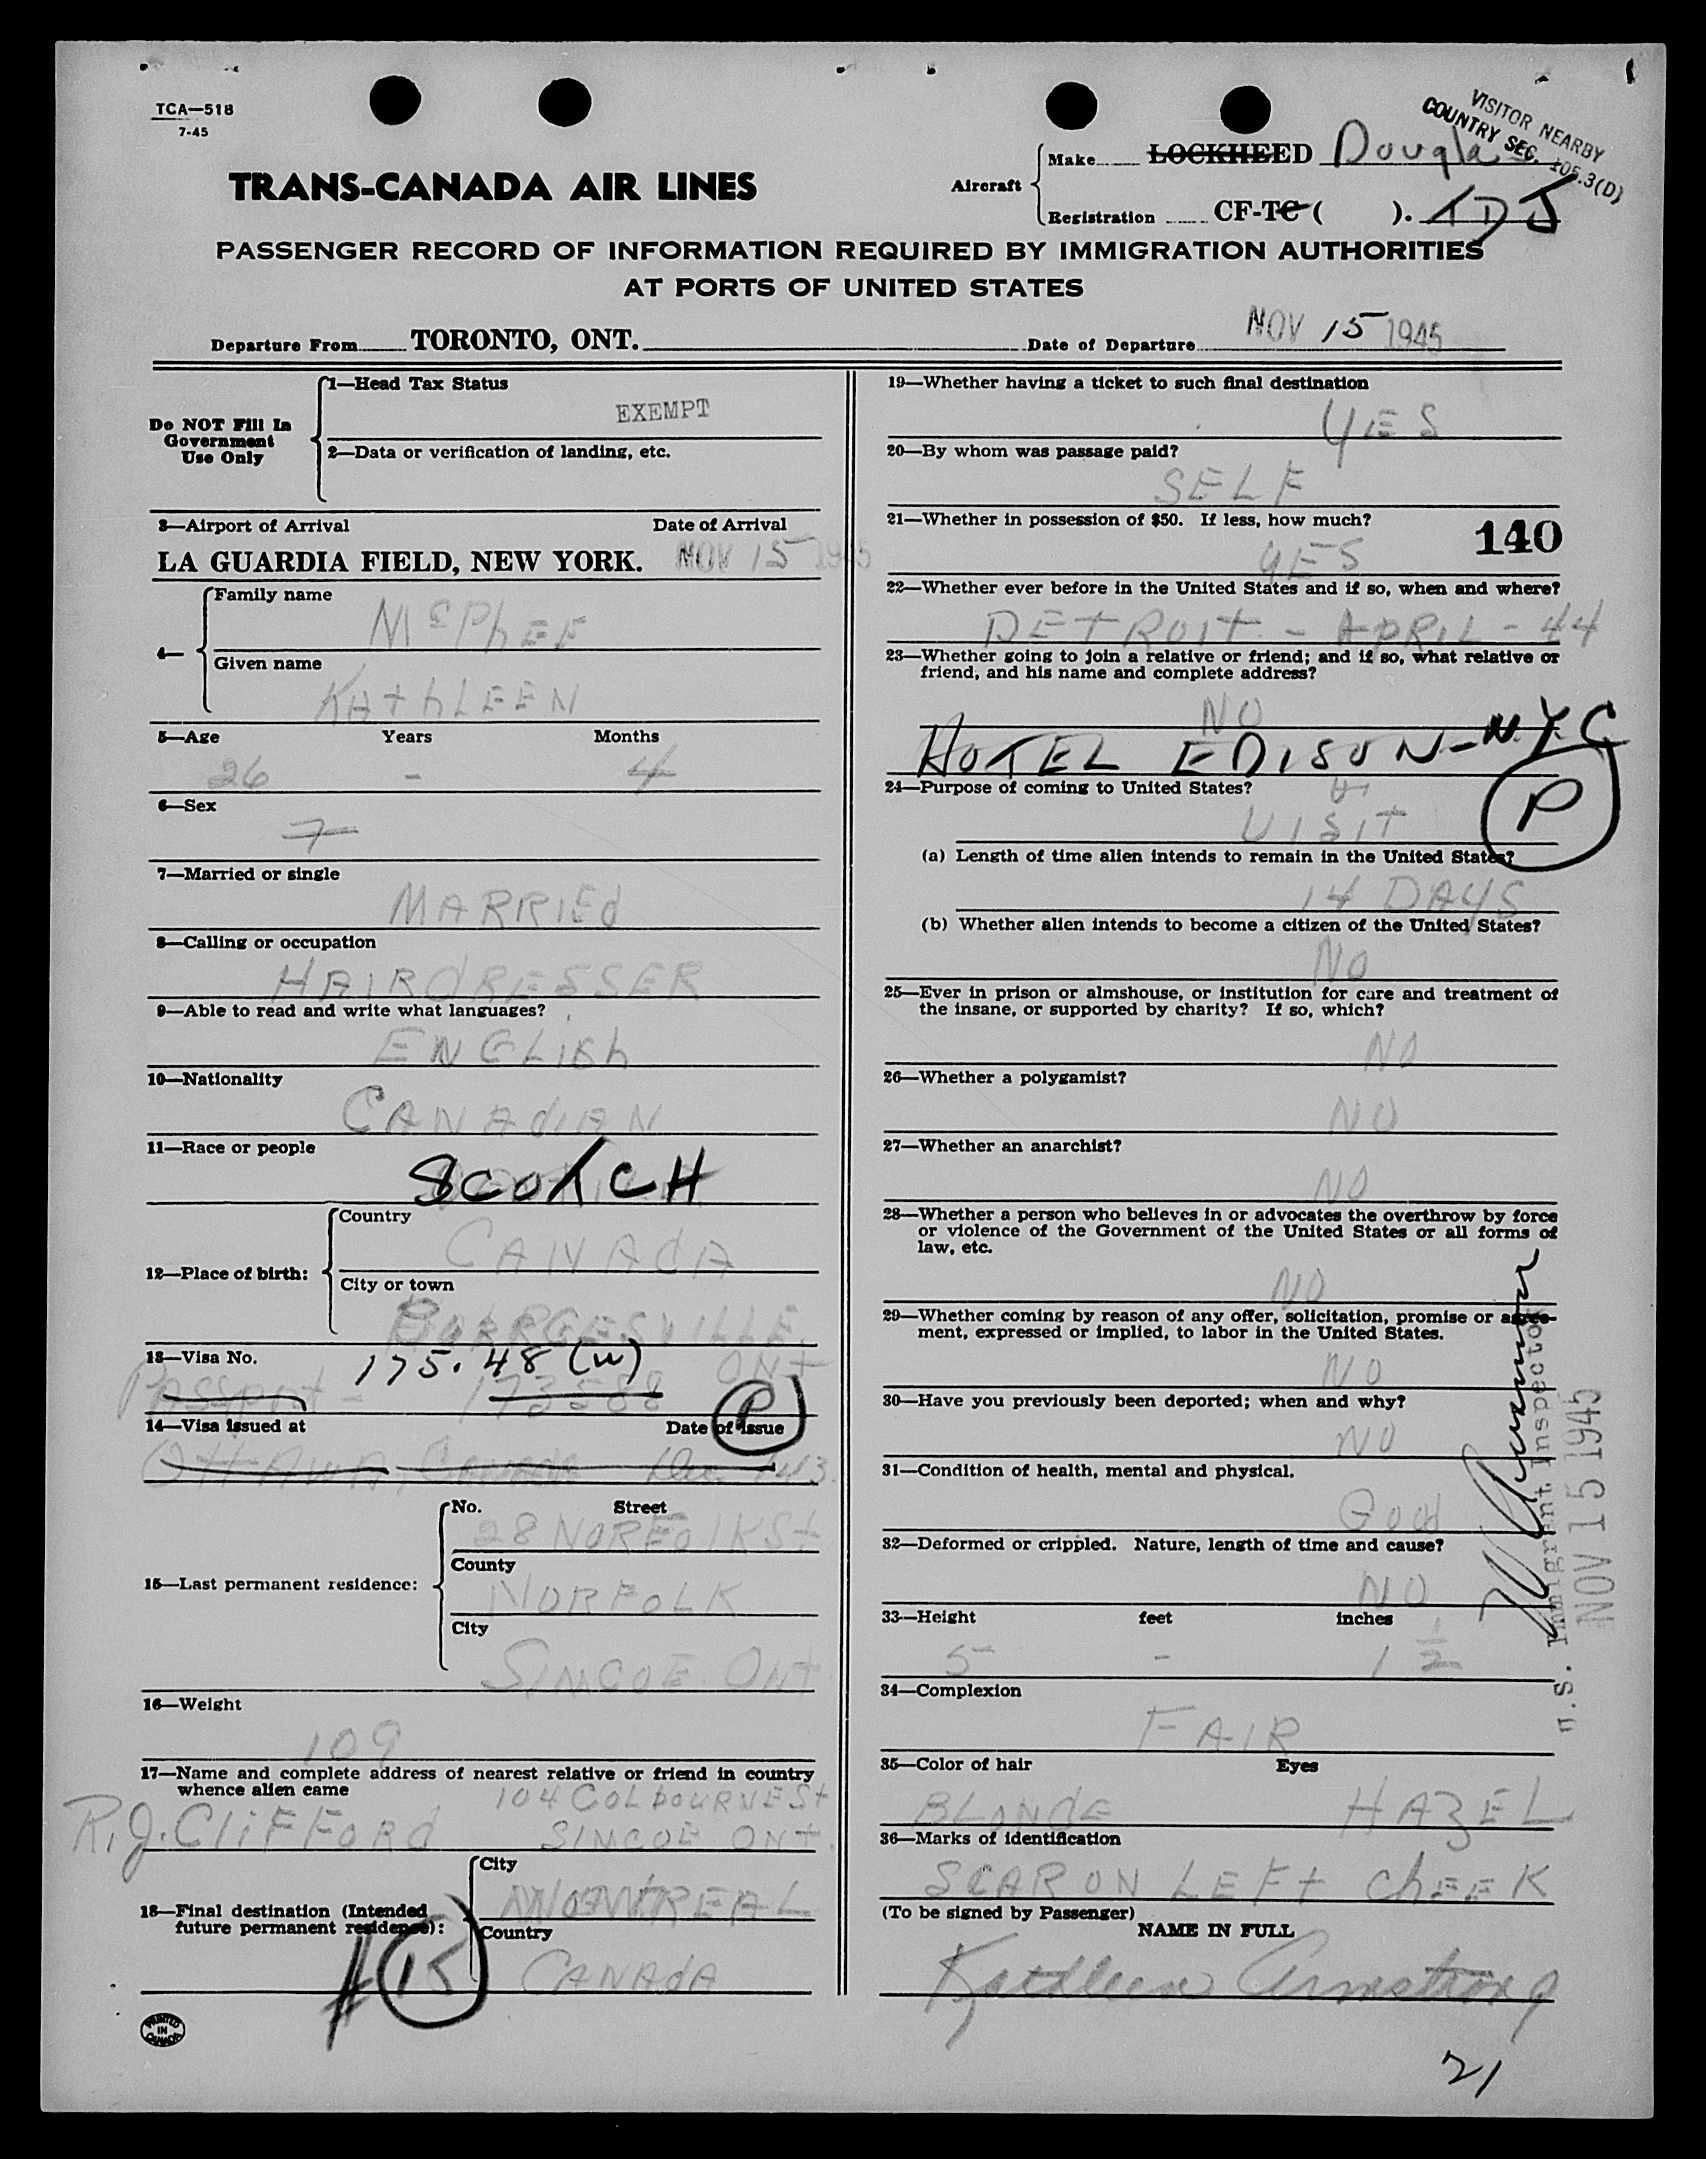 TCA—518
7-45
VISITOR NEARBY
COUNTRY SEC. 105.3(D)
TRANS-CANADA AIR LINES
Aircraft
Make LOCKHEED Douglas
Registration CF-TC ( ). TDJ
PASSENGER RECORD OF INFORMATION REQUIRED BY IMMIGRATION AUTHORITIES
AT PORTS OF UNITED STATES
Departure From TORONTO, ONT. Date of Departure NOV 15 1945
Do NOT Fill In
Government
Use Only
1—Head Tax Status
EXEMPT
2—Data or verification of landing, etc.
3—Airport of Arrival Date of Arrival
LA GUARDIA FIELD, NEW YORK. NOV 15 1945
4—
Family name
McPhEE
Given name
KAthLEEN
5—Age Years Months
26 - 4
6—Sex
7
7—Married or single
MARRIEd
8—Calling or occupation
HAIRdRESSER
9—Able to read and write what languages?
ENGLISh
10—Nationality
CANAdIAN
11—Race or people
SCOTCH
12—Place of birth:
Country
CANAdA
City or town
BURGESVILLE
ONT
13—Visa No. 175.48 (w)
Passport - 173588
14—Visa issued at Date of issue
P
OttAWA, CANADA
15—Last permanent residence:
No. Street
28 NORFOLK St
County
NORFOLK
City
SIMCOE ONT
16—Weight
109
17—Name and complete address of nearest relative or friend in country
whence alien came
104 COLBOURNE St
R.J. CLIFFORd SIMCOE ONT.
18—Final destination (Intended
future permanent residence):
City
MONTREAL
Country
CANAdA
15
PRINTED
IN
CANADA
19—Whether having a ticket to such final destination
YES
20—By whom was passage paid?
SELF
21—Whether in possession of $50. If less, how much?
140
YES
22—Whether ever before in the United States and if so, when and where?
DEtROIt - APRIL - 44
23—Whether going to join a relative or friend; and if so, what relative or
friend, and his name and complete address?
NO
HOTEL EDISON - N.Y.C
24—Purpose of coming to United States?
VISIT
P
(a) Length of time alien intends to remain in the United States?
14 DAYS
(b) Whether alien intends to become a citizen of the United States?
NO
25—Ever in prison or almshouse, or institution for care and treatment of
the insane, or supported by charity? If so, which?
NO
26—Whether a polygamist?
NO
27—Whether an anarchist?
NO
28—Whether a person who believes in or advocates the overthrow by force
or violence of the Government of the United States or all forms of
law, etc.
NO
29—Whether coming by reason of any offer, solicitation, promise or agree-
ment, expressed or implied, to labor in the United States.
NO
30—Have you previously been deported; when and why?
NO
31—Condition of health, mental and physical.
Good
32—Deformed or crippled. Nature, length of time and cause?
NO
33—Height feet inches
5 - 1 1/2
34—Complexion
FAIR
35—Color of hair Eyes
BLONdE HAZEL
36—Marks of identification
SCAR ON LEFt ChEEK
(To be signed by Passenger)
NAME IN FULL
Kathleen Armstrong
U.S. Immigrant Inspector
NOV 15 1945
21